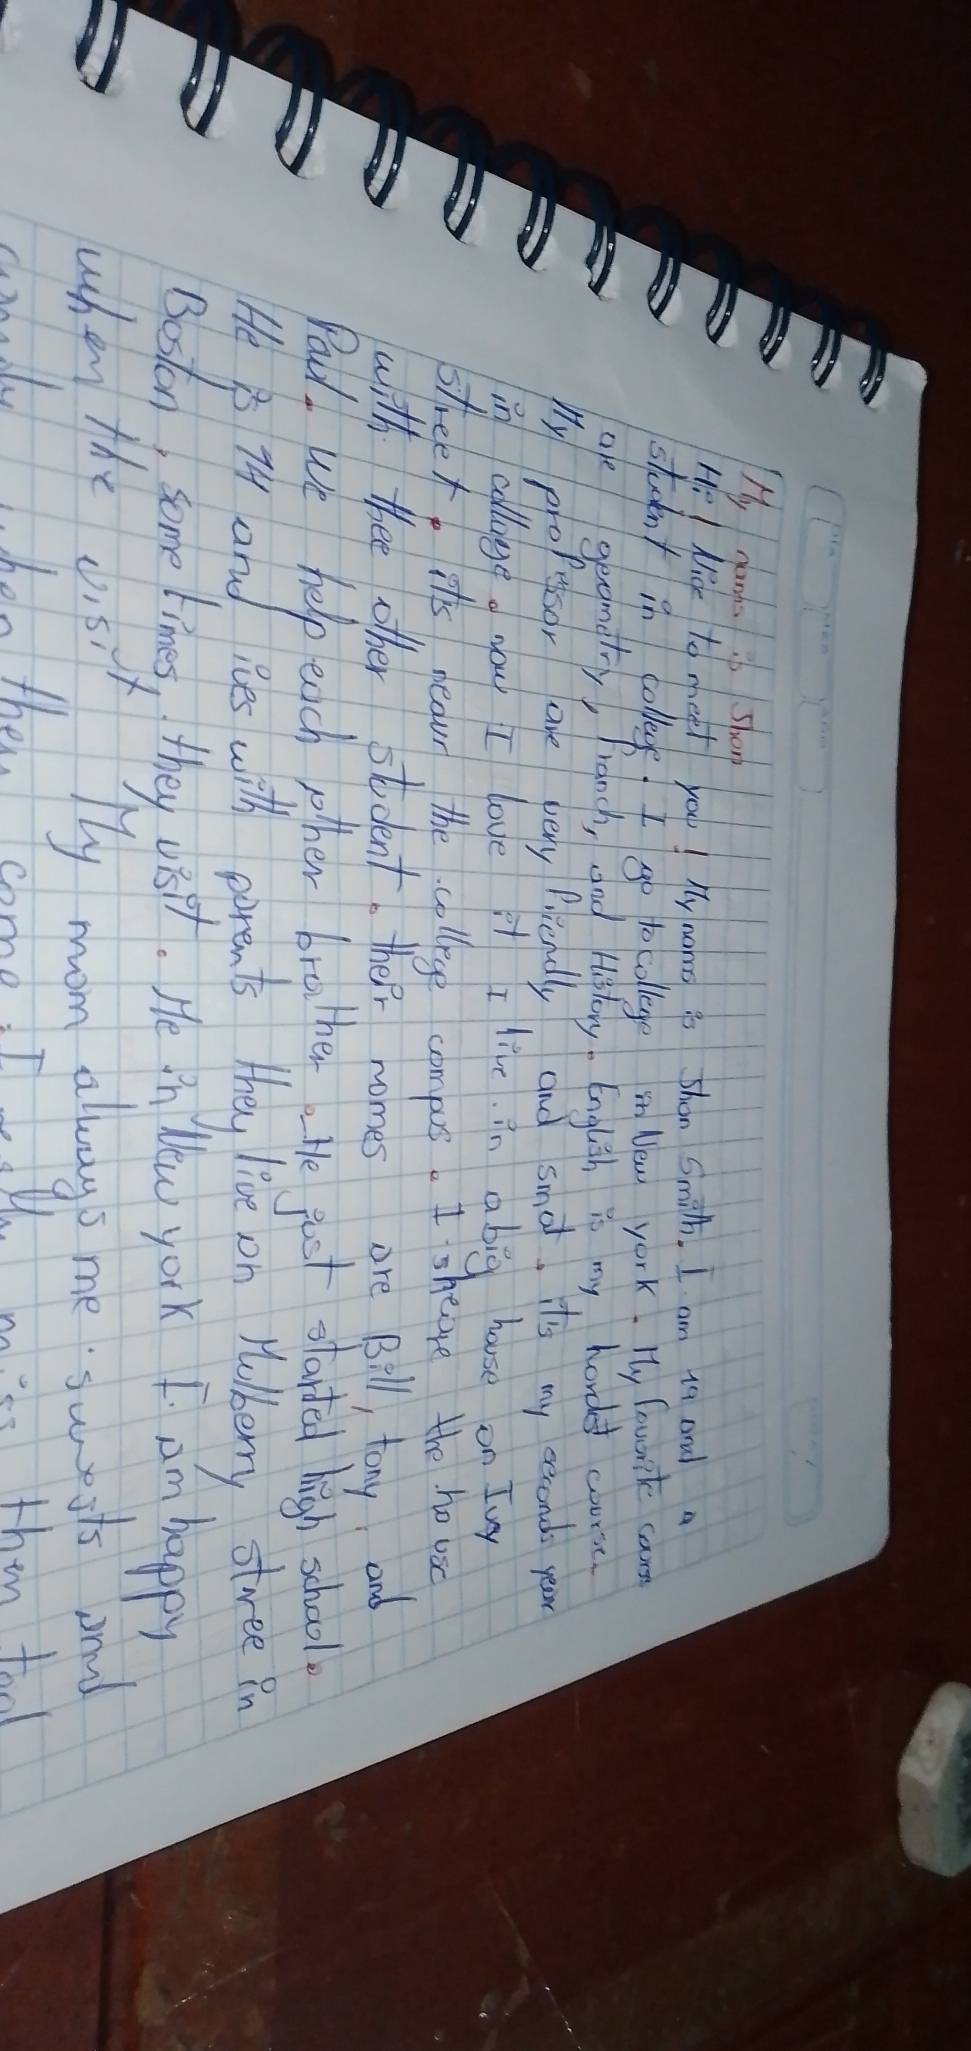 My nams is Jhon
Hi! Nice to meet you! My nams is Jhon Smith. I am 19 and a
student in college. I go to college in New york. My favorite cams
are geometry, franch, and History. English is my hordest course.
My professor are very friendly and smat. it's my seconds year
in collage. now I love it I live in a big house on Ivy
street. it's near the college compas. I sheare the house
with thee other student. their nomes are Bill, tony, and
Paul. we help each other brother. He just started high school.
He is 14 and ives with parents they live on Mulberry stree in
Boston, some times they visit. Me in New york I am happy
when the visit My mom always me suwests and
when they come. I miss them too!